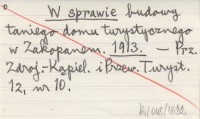 W sprawie budowy
taniego domu turystycznego
w Zakopanem. 1913. — Prz.
Zdroj.-Kąpiel. i Przew. Turyst.
12, nr 10.